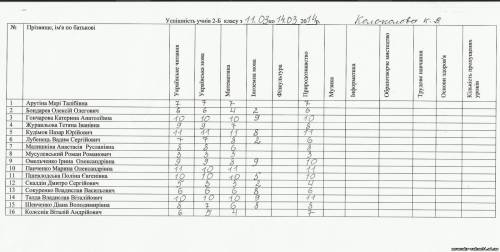 Успішність учнів 2-Б класу з 11.03 по 14.03 2014р.
№ Прізвище, ім'я по батькові Українське читання Українська мова Математика Іноземна мова Фізкультура Природознавство Музика Інформатика Образотворче мистецтво Трудове навчання Основи здоров'я Кількість пропущених уроків
1 7 7 7 7
2 Бондарев Олексій Олегович 8 6 4 2 6
3 Гончарова Катерина Анатоліївна 10 10 10 9 10
4 Журавльова Тетяна Іванівна 9 9 7 8
5 Кудімов Назар Юрійович 11 11 11 8 11
6 Лубенець Вадим Сергійович 7 7 8 2 6
7 Малишкіна Анастасія Русланівна 8 8 6 8
8 Мусулевський Роман Романович 3 3 3 3
9 Омельченко Ірина Олександрівна 9 9 8 9 10
10 Панченко Марина Олександрівна 11 10 11 11
11 Поліна Євгенівна 10 10 10 5 10
12 Сваддін Дмитро Сергійович 5 5 3 2 4
13 Сокуренко Владислав Васильович 6 6 6 8 6
14 Таода Владислав Віталійович 10 10 10 9 11
15 Шевченко Діана Володимирівна 8 7 6 8 8
16 Колєснік Віталій Андрійович 6 5 4 7